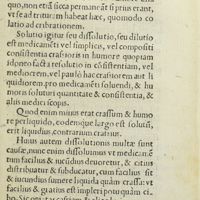 quo, non etiā sicca permaneāt si prius erant,
vt se ad tritur: m habeat hæc, quomodo co
latio ad cribrationem.
Solutio igitur seu dissolutio, seu dilutio
est medicamēti vel simplicis, vel compositi
consistentia crassioris in humore quopiam
idoneo facta resolutio in cōsistentiam, vel
mediocrem, vel paulo hac crassiorem aut li
quidiorem, pro medicamēti soluendi, & hu
moris soluturi quantitate & consistentia, &
aliis medici scopis.
Quod enim minus erat crassum & humo
re perliquido, eodemque largo est solutū,
erit liquidius, contrarium crassius.
Huius autem dissolutionis multæ sunt
causæ, nunc enim dissoluimus vt medicam̄
tum facilius & iucūdius deuoretur, & citius
distribuatur & subducatur, cum facilius sit
& iucundius sumere liquida quàm crassa: vt
facilius & gratius est impleri potu quàm ci-